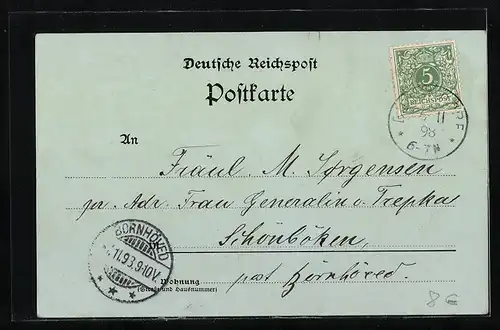 Deutsche Reichspost
Postkarte
5
REICHSPOST
11
98
6-7N
An
Fräul. M. Sørgensen
pr. Adr. Frau Generalin v. Trepka
Schönböken,
BORNHÖVED
11.93.9-10V.
post Börnhöved.
Wohnung
(Straße und Hausnummer)
8€